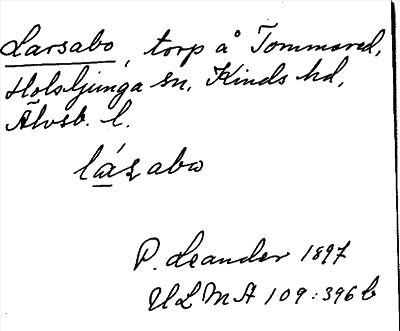 Larsabo, torp å Tommared,
Holsljunga sn, Kinds hd,
Älvsb. l.
lásabo
P. Leander 1897
ULMA 109:396 b